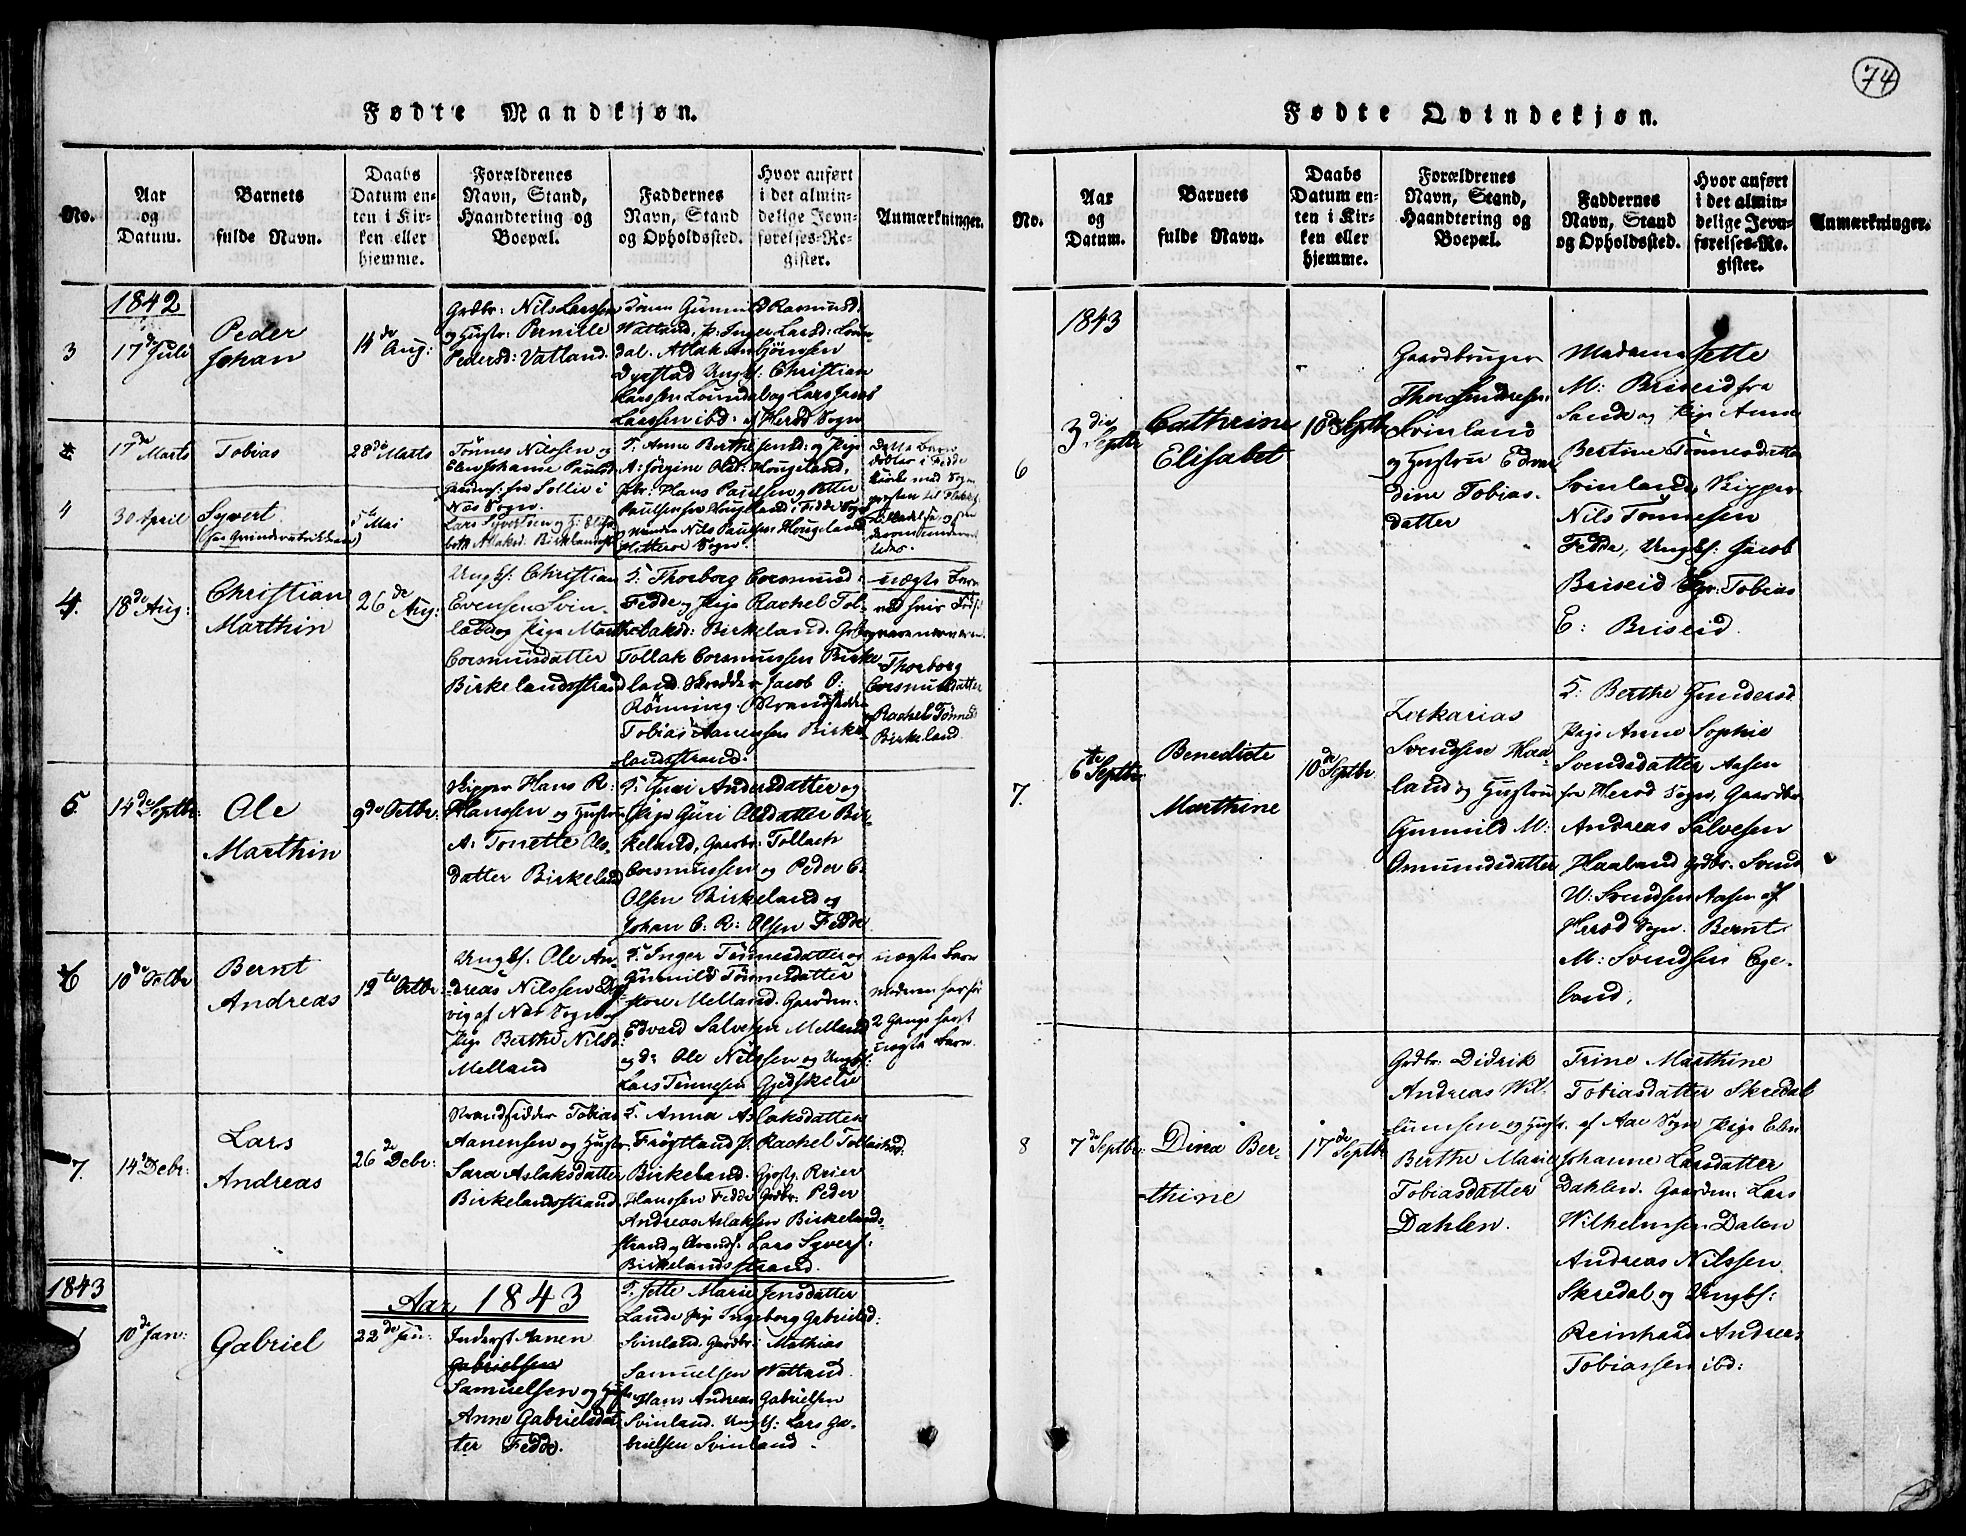 74
Fødte Mandkjøn.
No.
Aar
og
Datum.
Barnets
fulde Navn.
Daabs
Datum en-
ten i Kir-
ken eller
hjemme.
Forældrenes
Navn, Stand,
Haandtering og
Boepæl.
Faddernes
Navn, Stand
og Opholdssted.
Hvor anført
i det almin-
delige Jevn-
førelses-Re-
gister.
Anmærkninger.
1842
3
17de Juli
Peder
Johan
14de Aug:
Grdbr: Nils Larssen
og Hustr: Pernille
Pedersd: Vatland.
Gunnild Rasmusd:
Watland, p: Inger Larsd: Loun-
dal. Atlak Gjönsen
Dyrstad Ungk: Christian
Larssen Loundal og Lars Jacob
Larssen ibd: af Herod Sogn
17de Marts
Tobias
28de Marts
Tönnes Nilssen og
Elen Johanne Paulsd:
fra Sollie i
Næs Sogn.
F. Anne Berthe og Pige
A: Jörgine Olsd: Hougeland,
Hans Paulsen og Petter
Paulsen Hougeland i Fedde Sogn
Nils Paulsen Hougeland
Hitteroe Sogn.
4
30 April
Syvert
5te Mai
Lars Syvertsen og
Atlaksd. Birkelandsstr
4.
18de Aug:
Christian
Marthin
26de Aug:
Ungk: Christian
Evensen Svin-
land og Pige Marthe
Corsmusdatter
Birkelandsstrand
F: Thorborg Corsmusd:
Fedde og Pige Rachel Tol-
laksd: Birkeland. Grbr
Tollak Corsmussen Birke
land. Skredder Jacob O:
Rönning. Strandsidder
Tobias Aanensen Birke-
landsstrand.
uægte Barn
Thorborg
Corsmusdatter
Rachel Tönnes
Birkeland.
5
14de Septbr:
Ole
Marthin
9de Octbr:
Skipper Hans R:
Hanssen og Hustr
A: Tonette Ols-
datter Birkeland
F: Guri Andersdatter og
Pige Guri Olsdatter Bir-
keland, Gaardbr: Tollach
Corsmussen og Peder C.
Olsen Birkeland og
Johan C. R: Olsen Fedde.
6
10de Octbr
Bernt
Andreas
19te Octbr.
Ungk: Ole An-
dreas Nilssen
vig af Næs Sogn og
Pige Berthe Nilsd:
Melland
F. Inger Tönnesdatter og
Gunnild Tönnesdatter
Melland. Gaardm:
Edvard Salvesen Melland
og do Ole Nilssen og Ungk:
Lars Tönnesen Gjedskelie
uægte Barn
moderen har för
2 Gange havt
uægte Barn.
7.
14de Debr:
Lars
Andreas
26de Debr:
Strandsidder Tobias
Aanensen og Hustr
Sara Aslaksdatter
Birkelandsstrand
F. Anna Aslaksdatter
Fröytland p. Rachel Tollaksd:
Birkeland. Reier
Hanssen Fedde Grdbr: Peder
Andreas Aslaksen Birkelands-
strand og Lars Syvers:
Birkelandsstrand.
1843
Aar 1843
1
10de Jan:
Gabriel
22de Jan:
Inderst Aanen
Gabrielsen
Samuelsen og Hust
Anne Gabrielsdat-
ter Fedde.
F. Jette Marie Jensdatter
Lande Pige Ingeborg Gabrielsd:
Svinland. Gardbr: Mathias
Samuelsen Watland.
Hans Andreas Gabrielsen
Svinland. Ungk: Lars Ga-
brielsen Svinland.
Fødte Qvindekjøn.
No.
Aar
og
Datum.
Barnets
fulde Navn.
Daabs
Datum en-
ten i Kir-
ken eller
hjemme.
Forældrenes
Navn, Stand,
Haandtering og
Boepæl.
Faddernes
Navn, Stand
og Opholdssted.
Hvor anført
i det almin-
delige Jevn-
førelses-Re-
gister.
Anmærkninger.
1843
6
3die Septbr
Cathrine
Elisabet
10de Septbr
Gaardbruger
Thore Sindresen
Svinland
og Hustru Edvar
dine Tobias-
datter
Madama Jette
M: Briseid fra
Sande og Pige Anne
Bertine Tönnesdatter
Svinland, Skipper
Nils Tönnesen
Fedde, Ungk: Jacob
Briseid Tobias
E: Briseid.
7.
6te Septbr
Benedicte
Marthine
10de Septbr.
Zakarias
Svendsen Haa-
land og Hustru
Gunnild M:
Osmundsdatter
F: Berthe Gundersd
Pige Anne Sophie
Svendsdatter Aasen
fra Herod Sogn, Gaardbr.
Andreas Salvesen
Haaland Grdbr. Svend
W: Svendsen Aasen af
Herod Sogn. Bernt
M: Svendsen Ege-
land.
8
7de Septbr:
Dina Ber-
thine
17de Septbr
Grdbr: Didrik
Andreas Wil-
lumsen og Hustr.
Berthe Marie
Tobiasdatter
Dahlen.
Trine Marthine
Tobiasdatter Skredal
af Aae Sogn Pige Elen
Johanne Larsdatter
Dahlen. Gaardm: Lars
Wilhelmsen Dalen
Andreas Nilssen
Skredal og Ungk:
Reinhard Andreas
Tobiassen ibd: